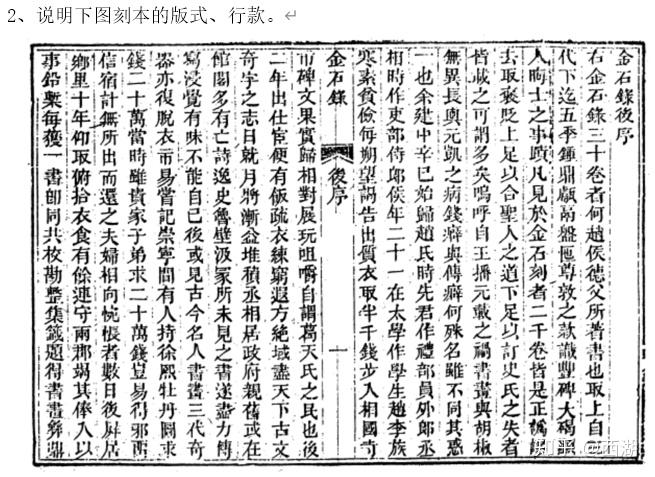 2、说明下图刻本的版式、行款。
金石錄後序
右金石錄三十卷者何趙侯德父所著書也取上自
代下迄五季鍾鼎甗鬲盤匜尊敦之款識豐碑大碣
人晦士之事蹟凡見於金石刻者二千卷皆是正譌
去取褒貶上足以合聖人之道下足以訂史氏之失者
皆載之可謂多矣嗚呼自王播元載之禍書畫與胡椒
無異長輿元凱之病錢癖與傳癖何殊名雖不同其惑
一也余建中辛巳始歸趙氏時先君作禮部員外郎丞
相時作吏部侍郎侯年二十一在太學作學生趙李族
寒素貧儉每朔望謁告出質衣取半千錢步入相國寺
金石錄 後序 一
市碑文果實歸相對展玩咀嚼自謂葛天氏之民也後
二年出仕宦便有飯疏衣練窮遐方絕域盡天下古文
奇字之志日就月將漸益堆積丞相居政府親舊或在
館閣多有亡詩逸史魯壁汲冢所未見之書遂盡力傳
寫浸覺有味不能自已後或見古今名人書畫三代奇
器亦復脫衣市易嘗記崇寧間有人持徐熙牡丹圖求
錢二十萬當時雖貴家子弟求二十萬錢豈易得邪兩
信宿計無所出而還之夫婦相向惋悵者數日後屏居
鄉里十年仰取俯拾衣食有餘連守兩郡竭其俸入以
事鉛槧每獲一書卽同共校勘整集籤題得書畫彝鼎
知乎 @西湖